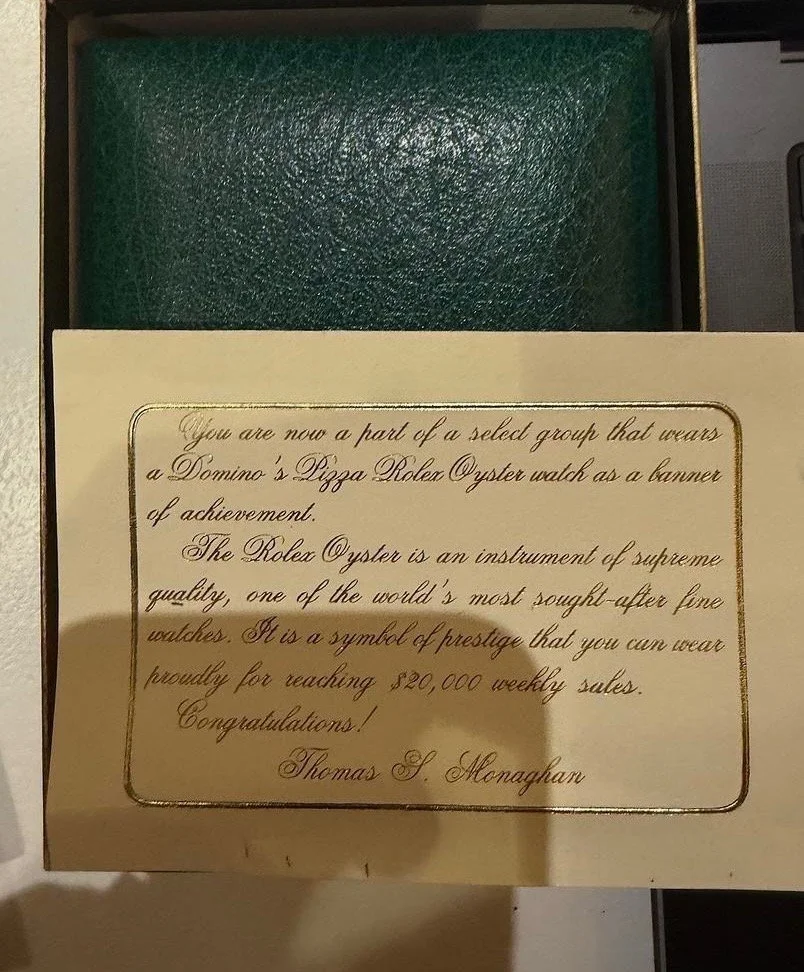 You are now a part of a select group that wears
a Domino's Pizza Rolex Oyster watch as a banner
of achievement.
The Rolex Oyster is an instrument of supreme
quality, one of the world's most sought-after fine
watches. It is a symbol of prestige that you can wear
proudly for reaching $20,000 weekly sales.
Congratulations!
Thomas S. Monaghan